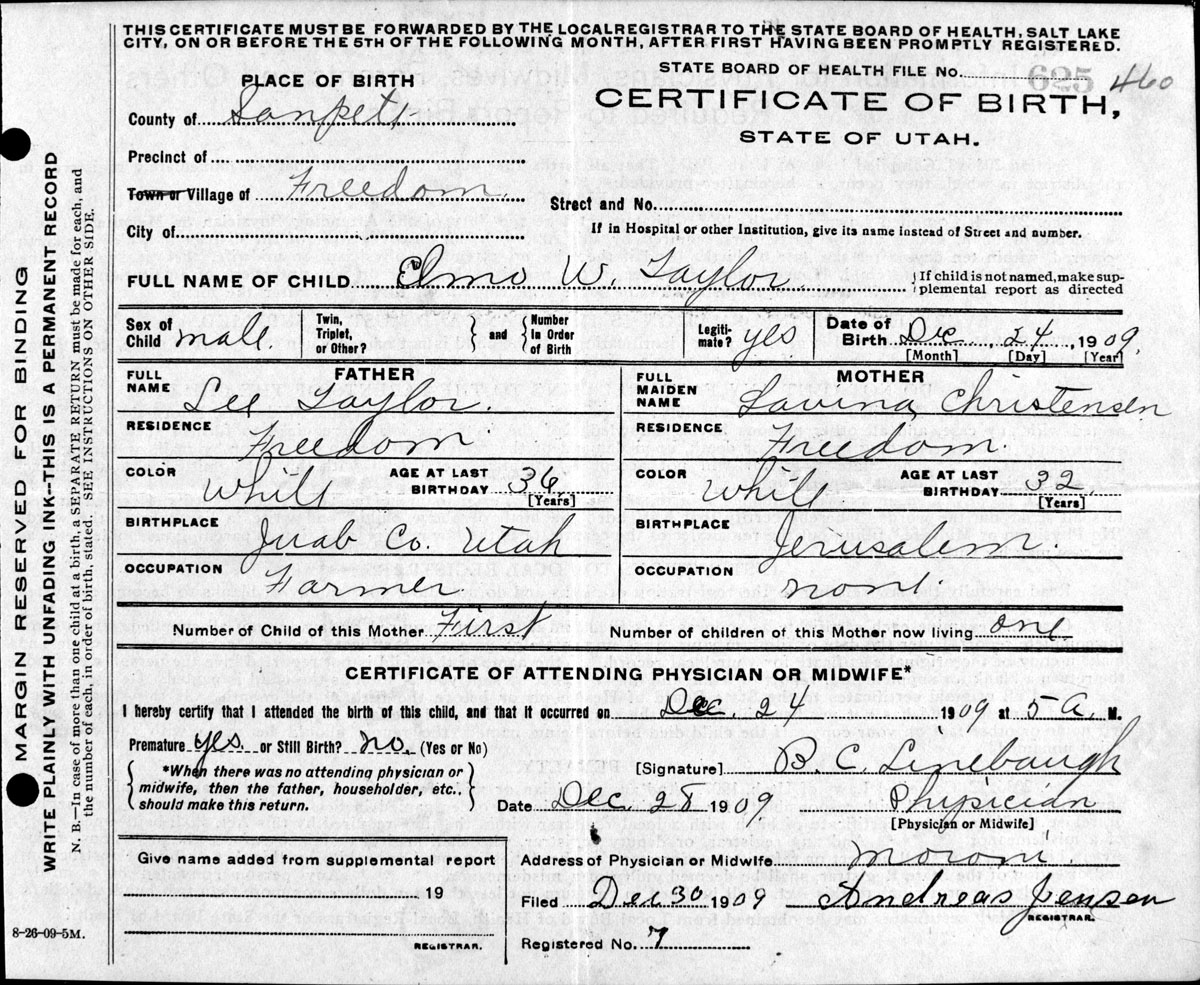 THIS CERTIFICATE MUST BE FORWARDED BY THE LOCAL REGISTRAR TO THE STATE BOARD OF HEALTH, SALT LAKE
CITY, ON OR BEFORE THE 5TH OF THE FOLLOWING MONTH, AFTER FIRST HAVING BEEN PROMPTLY REGISTERED.
STATE BOARD OF HEALTH FILE No. 625 460
PLACE OF BIRTH
CERTIFICATE OF BIRTH,
STATE OF UTAH.
County of Sanpete
Precinct of
Town or Village of Freedom
Street and No.
City of
If in Hospital or other Institution, give its name instead of Street and number.
FULL NAME OF CHILD Elmo W. Taylor. {If child is not named, make sup-
plemental report as directed
Sex of Child male. Twin, Triplet, or Other? } and { Number In Order of Birth Legiti- mate? yes Date of Birth Dec 24 1909.
[Month] [Day] [Year]
FATHER
MOTHER
FULL NAME Lee Taylor.
FULL MAIDEN NAME Lavina Christensen
RESIDENCE Freedom
RESIDENCE Freedom.
COLOR White AGE AT LAST BIRTHDAY 36 [Years]
COLOR White AGE AT LAST BIRTHDAY 32 [Years]
BIRTHPLACE Juab Co. Utah
BIRTHPLACE Jerusalem.
OCCUPATION Farmer.
OCCUPATION none.
Number of Child of this Mother First Number of children of this Mother now living one
CERTIFICATE OF ATTENDING PHYSICIAN OR MIDWIFE*
I hereby certify that I attended the birth of this child, and that it occurred on Dec. 24 1909 at 5 A. M.
Premature yes. or Still Birth? no. (Yes or No)
{ *When there was no attending physician or
midwife, then the father, householder, etc.,
should make this return. }
[Signature] B. C. Linebaugh
Date Dec. 28 1909 Physician
[Physician or Midwife]
Give name added from supplemental report
19
REGISTRAR.
Address of Physician or Midwife Moroni.
Filed Dec 30 1909 Andreas Jensen
REGISTRAR.
Registered No. 7
8-26-09-5M.
MARGIN RESERVED FOR BINDING
WRITE PLAINLY WITH UNFADING INK—THIS IS A PERMANENT RECORD
N. B.—In case of more than one child at a birth, a SEPARATE RETURN must be made for each, and
the number of each, in order of birth, stated. SEE INSTRUCTIONS ON OTHER SIDE.